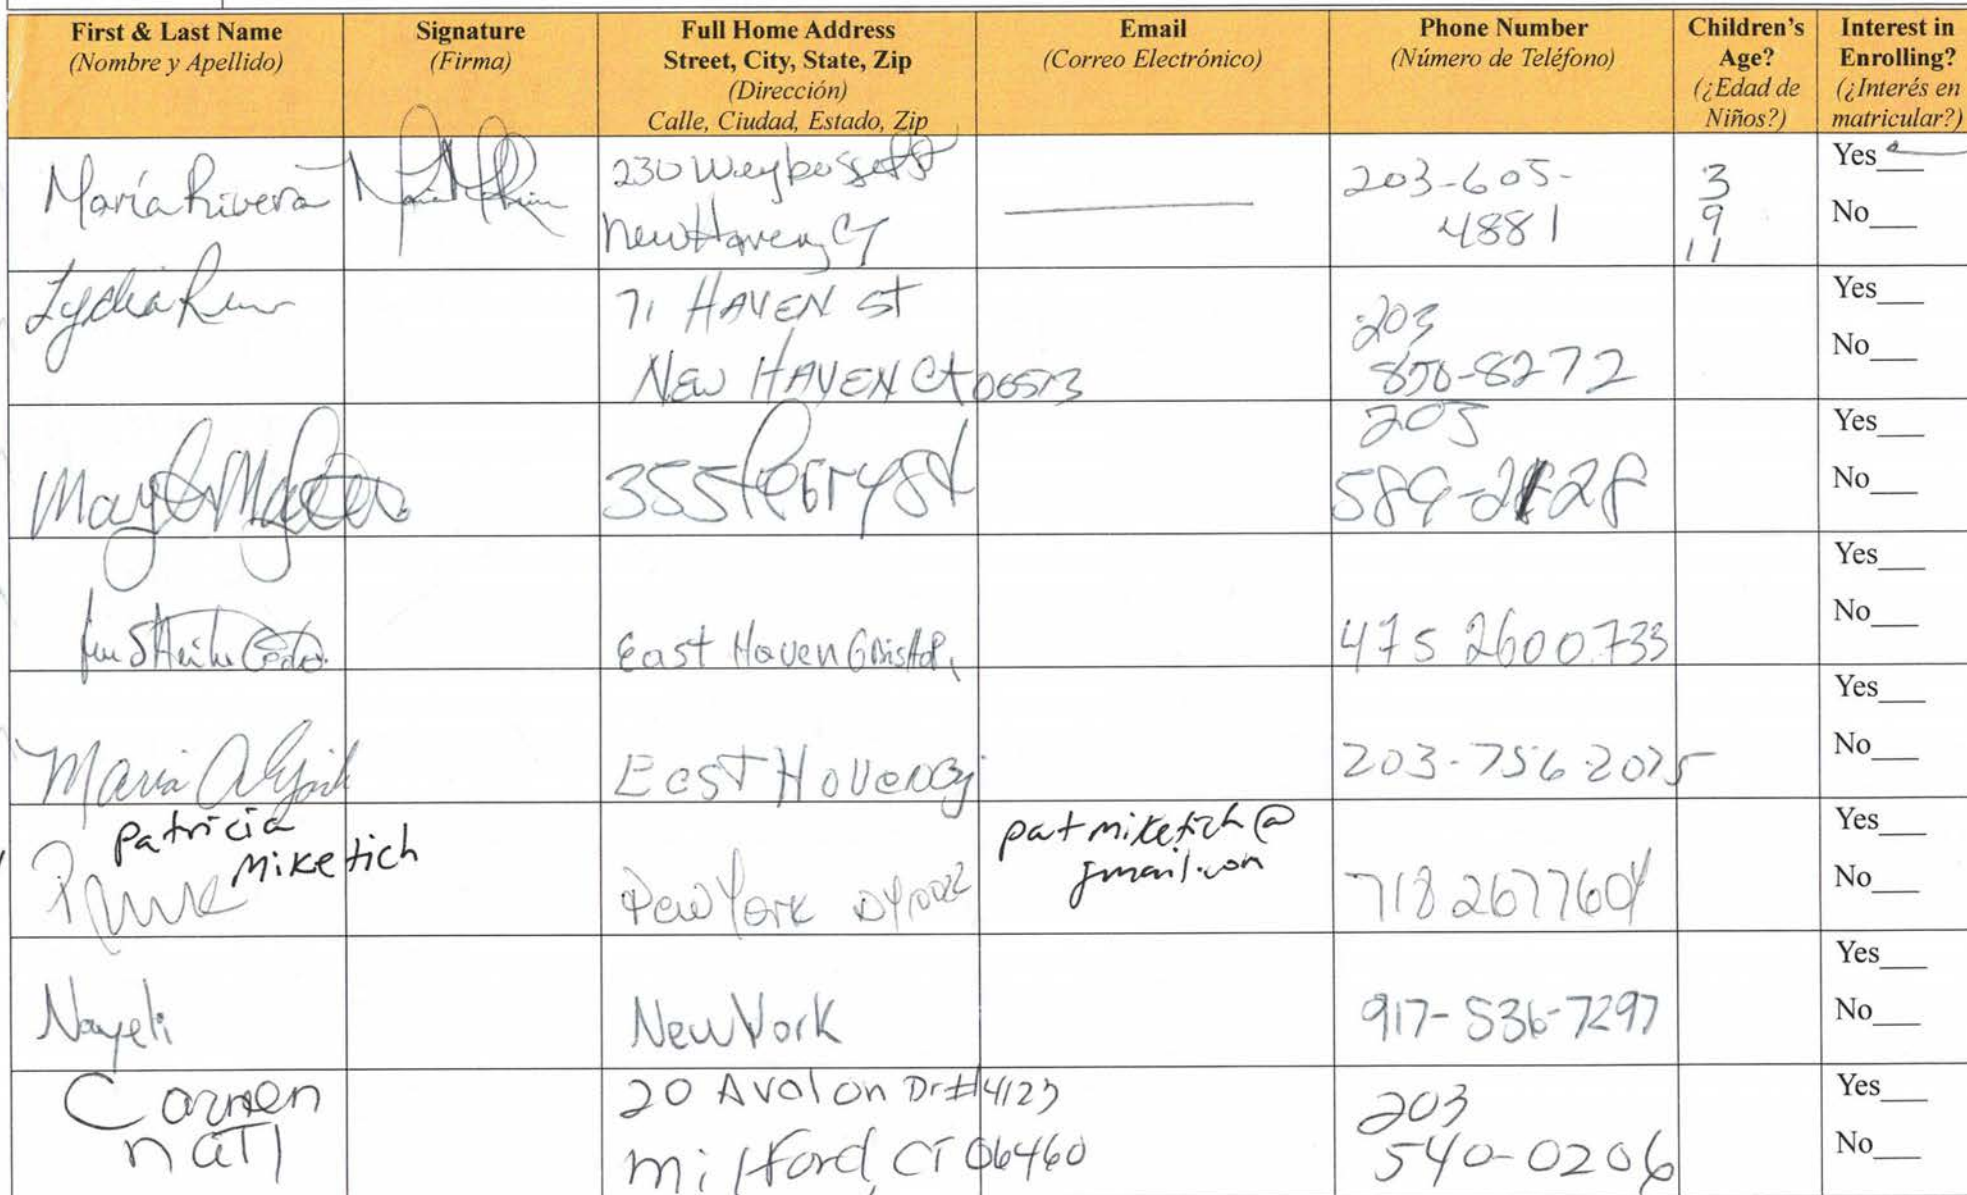 First & Last Name
(Nombre y Apellido)
Signature
(Firma)
Full Home Address
Street, City, State, Zip
(Dirección)
Calle, Ciudad, Estado, Zip
Email
(Correo Electrónico)
Phone Number
(Número de Teléfono)
Children's
Age?
(¿Edad de
Niños?)
Interest in
Enrolling?
(¿Interés en
matricular?)
María Rivera
230 Weybosset St
New Haven, CT
203-605-
4881
3
9
11
Yes
No
Lydia
71 HAVEN St
NEW HAVEN Ct 06513
203
850-8272
Yes
No
355 Ferry St
203
Yes
No
East Haven
475 2600733
Yes
No
Maria
East Haven
203-756-2075
Yes
No
Patricia
Miketich
New York
patmiketich@
gmail.com
718 2677604
Yes
No
Nayeli
New York
917-536-7297
Yes
No
Carmen
20 Avalon Dr #4123
Milford, CT 06460
203
540-0206
Yes
No